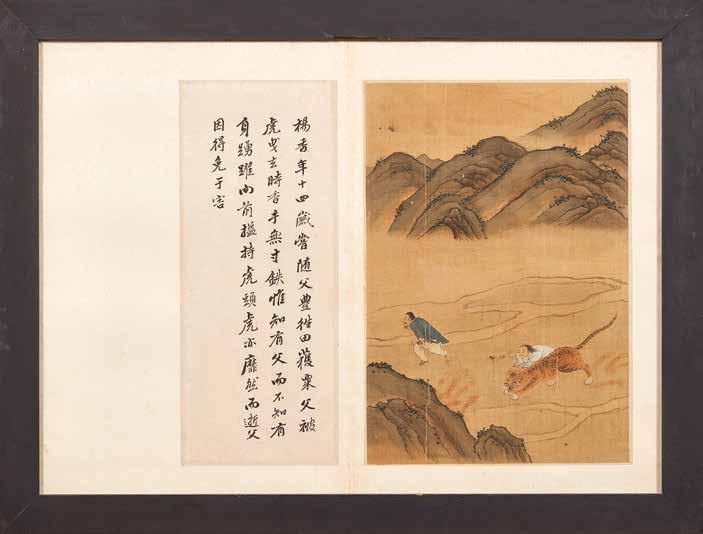 楊香年十四歲嘗随父豊徃田獲粟父被
虎曳去時香手無寸鉄惟知有父而不知有
身踴躍向前搤持虎頸虎亦靡然而逝父
因得免于害